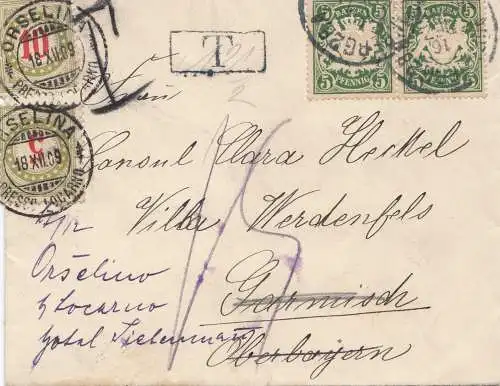 ORSELINA
10
18.XII.09
(PRESSO LOCARNO)
T
BAYERN
5 PFENNIG 5
BAYERN
5 PFENNIG 5
ORSELINA
5
18.XII.09
(PRESSO LOCARNO)
Frau
2
Consul Clara Heckel
Villa Werdenfels
Orselino
b Locarno
Garmisch
Oberbayern
15